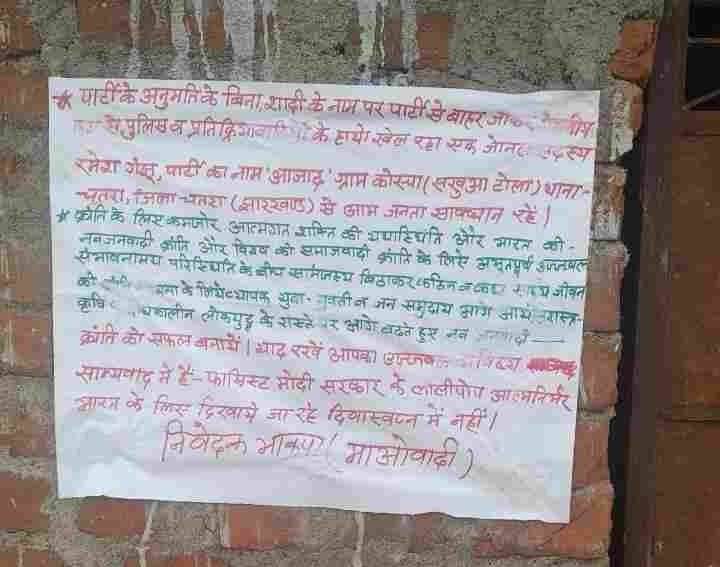 * पार्टी के अनुमति के बिना, शादी के नाम पर पार्टी से बाहर
से पुलिस व के हाथों खेल रहा एक जोनल सदस्य
रमेश गंझू, पार्टी का नाम 'आजाद' ग्राम कोस्पा (सखुआ टोला) थाना-
चतरा, जिला-चतरा (झारखण्ड) से आम जनता सावधान रहें।
* क्रांति के लिए कमजोर आत्मगत शक्ति की यथास्थिति और भारत की-
नवजनवादी क्रांति और विश्व की समाजवादी क्रांति के लिए अभूतपूर्व उज्जवल
संभावनामय परिस्थिति के बीच सामंजस्य बिठाकर कठिन व कष्ट साध्य जीवन
को के लिये व्यापक युवा-युवती व जन समुदाय आगे आयें।
कृषि लोकयुद्ध के रास्ते पर आगे बढ़ते हुए नव जनवादी
क्रांति को सफल बनायें। याद रखें आपका उज्जवल भविष्य
साम्यवाद में है- फासिस्ट मोदी सरकार के लालीपोप आत्मनिर्भर
भारत के लिए दिखाये जा रहे दिवास्वप्न में नहीं।
निवेदक भाकपा (माओवादी)